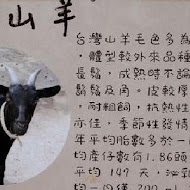 山羊
台灣山羊毛色多為
，體型較外來品種
長鬚，成熟時不論
鬍鬚及角。皮較厚
，耐粗飼、抗熱性
亦佳，季節性發情
年平均胎數多於一
均產仔數有1.86頭
平均147天，泌乳